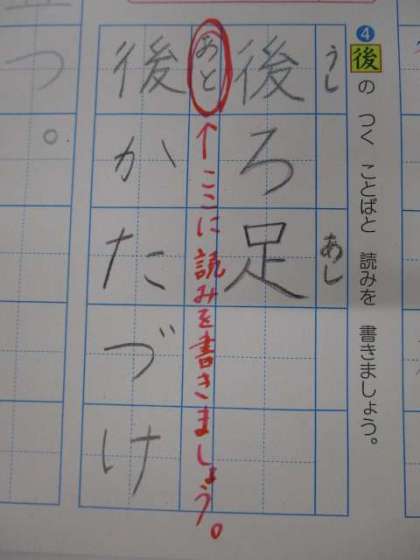 4 後の つく ことばと 読みを 書きましょう。
うし あし
後ろ足
あと ↑ここに読みを書きましょう。
後かたづけ
つ。